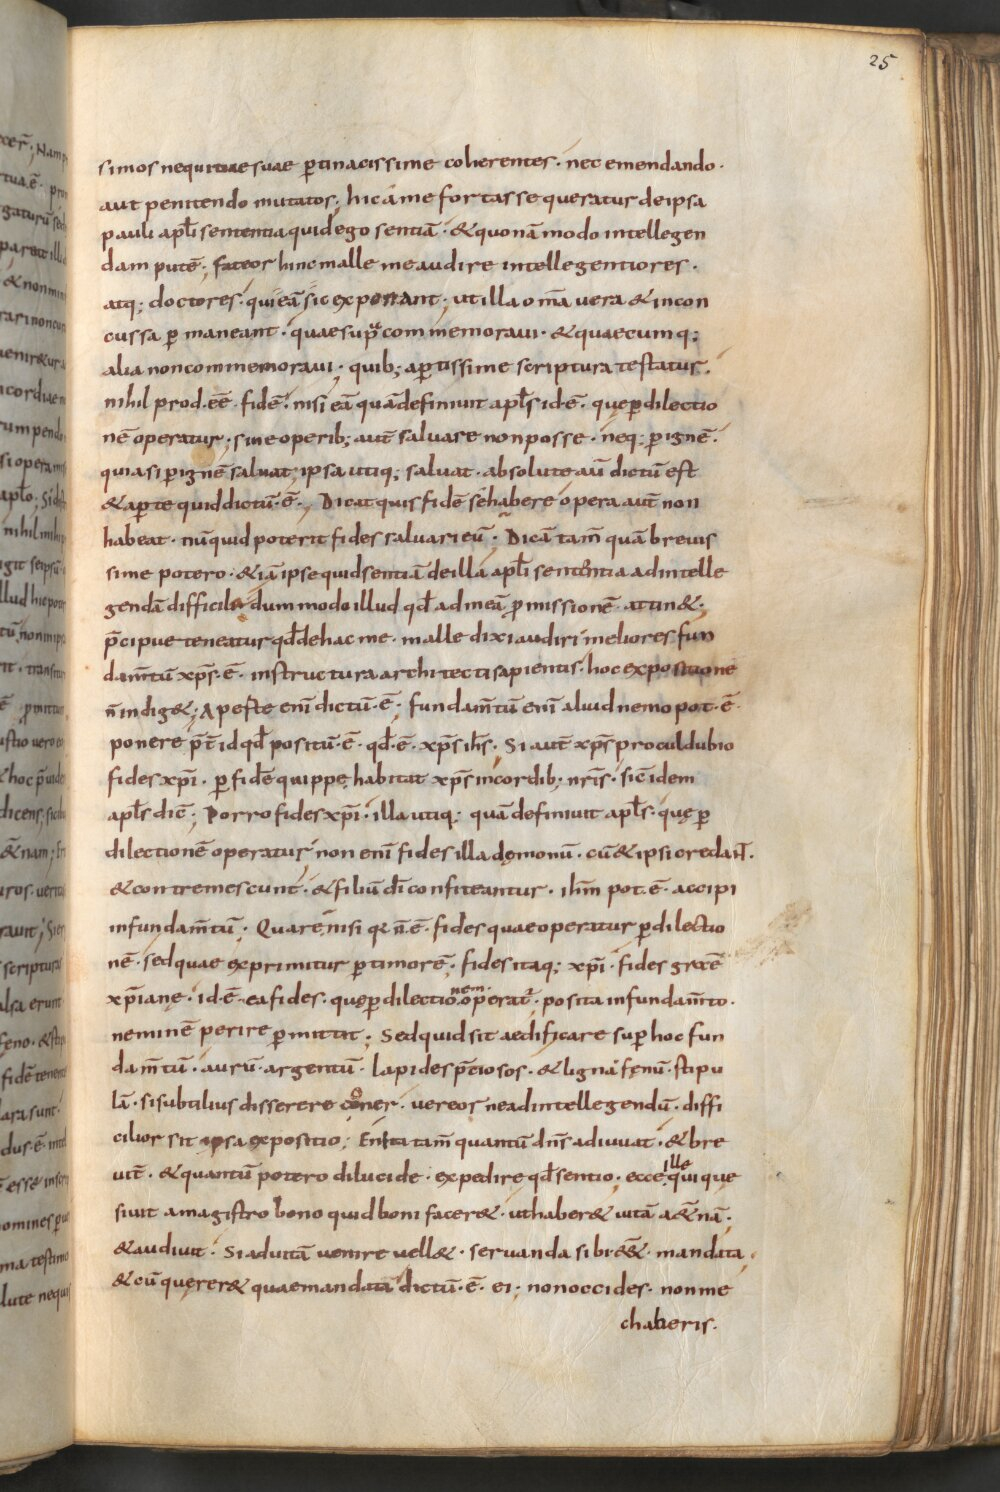 25
simos nequitiae suae ꝑtinacissime coherentes · nec emendando ·
aut penitendo mutatos; hic á me fortasse queratur de ipsa
pauli apłi sententia quid ego sentiā · & quonā modo intellegen
dam putē; fateor hinc malle me audire intellegentiores ·
atq; doctores · qui eā sic exponant; ut illa om̄a vera & incon
cussa ꝑmaneant · quae supͣ commemoravi · & quaecumq;
alia non commemoravi · quib; aꝑtissime scriptura testatur ·
nihil prod.ee̅ · fidē · nisi eā quā definivit apłs id · ē · quę ꝑ dilectio
nē operatur; sine operib; aut̄ salvare non posse · neq; ꝑ ignē ·
quia si ꝑ ignē salvat; ipsa utiq; salvat · absolute aut̄ dictū est
& aꝑte quid dictū · ē ·, Dicat quis fidē se habere opera aut̄ non
habeat · nūquid poterit fides salvari eū · Dicā tam̄ quā brevis
sime potero · & iā ipse quid sentiā de illa apłi sententia ad intelle
gendā difficilę dummodo illud qđ ad meā ꝓmissionē · attin& ·
p̄cipue teneatur qđ de hac me · malle dixi audiri meliores fun
dam̄tū xp̄s · ē · in structura architecti sapientis · hoc expositione
n̄ indig&; Apeste eni̅ dictū · ē · fundam̄tū eni̅ aliud nemo pot · ē ·
ponere p̄t̄ id qđ positū · ē · qđ · ē · xp̄s ih̄s · Si aut̄ xp̄s procul dubio
fides xp̄i · ꝑ fidē quippe habitat xp̄s in cordib; nr̄is · sic̄ idem
apłs dic̄; Porro fides xp̄i · illa utiq; quā definivit apłs · quę ꝑ
dilectionē operatur non eni̅ fides illa dęmonū · cū & ipsi credant ·
& contremescunt · & filiū dī confiteantur · ih̄m pot · ē · accipi
in fundam̄tū · Quare nisi qr n̄ ē · fides quae operatur ꝑ dilectio
nē · sed quae exprimitur ꝑ timorē · fides itaq; xp̄i · fides gratē
xp̄iane · id · ē · ea fides · quę ꝑ dilectionem · operat᷑ · posita in fundam̄to ·
neminē perire ꝑmittit; Sed quid sit aedificare suꝑ hoc fun
dam̄tū · aurū · argentū · lapides p̄ciosos · & ligna fęnū · stipu
lā · si subtilius disserere coner · vereos ne ad intellegendū · diffi
cilior sit ipsa expositio; Enitar tam̄ quantū dn̄s adiuvat · & bre
vit̄ · & quantū potero dilucide · expedire qđ sentio · ecce ille qui que
sivit a magistro bono quid boni facer& · ut haber& vitā a&̄nā ·
& audivit · Si ad vitā venire vell& · servanda sibi · e&̄ · mandata ·
& cū quęrer& quae mandata dictū · ē · ei; non occides · non me
chaberis ·